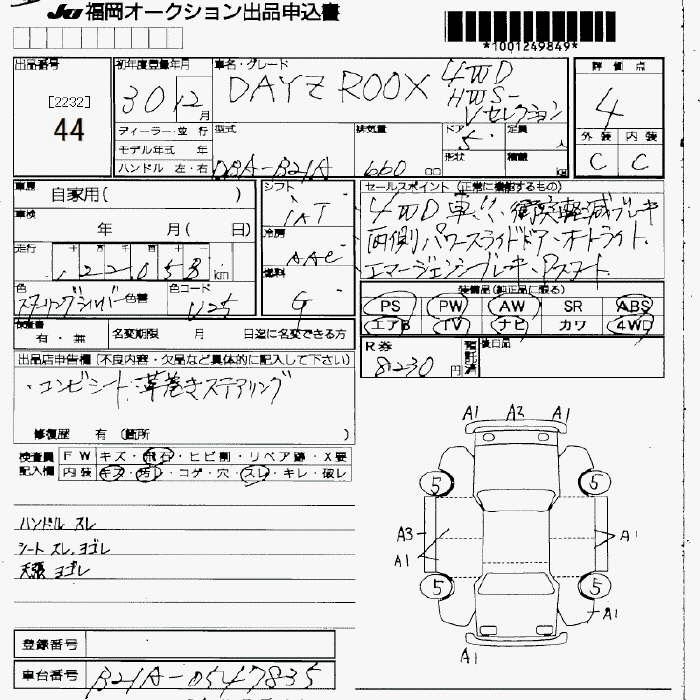 JU 福岡オークション出品申込書
*1001249849*
出品番号 初年度登録年月 車名・グレード 評価点
[2232]
44
30 12 月
DAYZ ROOX 4WD
HWS-
Vセレクション
4
ディーラー・並行 型式 排気量 ドア 定員 人 外装 内装
モデル年式 年 5 形状 積載 kg C C
ハンドル 左・右 DBA-B21A 660 cc
車歴 自家用( ) シフト セールスポイント(正常に機能するもの)
車検 年 月( 日) IAT 4WD車です、衝突軽減ブレーキ
冷房 両側パワースライドドア・オートライト、
走行 122058 km AAC エマージェンシーブレーキ・アシスト
色 色替 色コード 燃料
スターリングシルバー U25 G
装備品(純正品に限る)
PS PW AW SR ABS
エアB TV ナビ カワ 4WD
検査書 有・無 名変期限 月 日迄に名変できる方
R券 8230円 預託済 後日品
出品店申告欄(不良内容・欠品など具体的に記入して下さい)
・コンビシート、革巻きステアリング
修復歴 有(箇所 )
検査員 FW キズ・飛石・ヒビ割・リペア跡・X要
記入欄 内装 キズ・汚レ・コゲ・穴・スレ・キレ・破レ
ハンドル スレ
シート スレ、ヨゴレ
天張 ヨゴレ
A1 A2 A1
5 5
A3 A1
A1
5 5
A1
A1
登録番号
車台番号 B21A-0547835